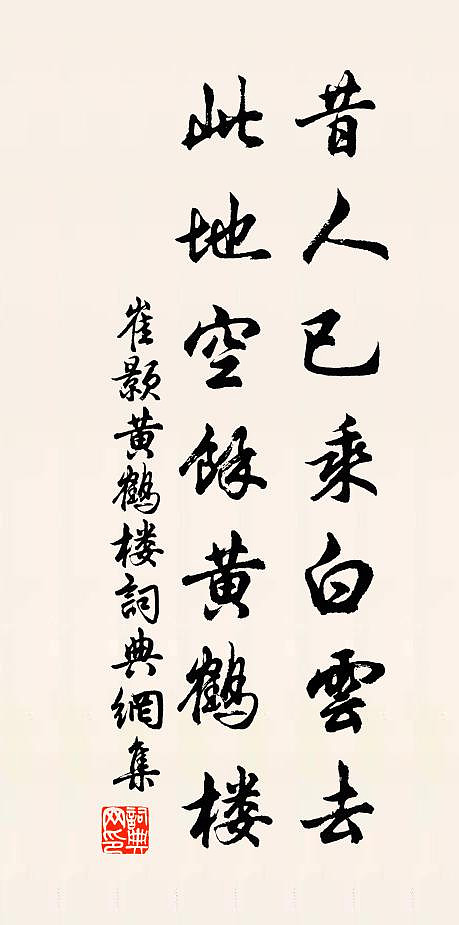 昔人已乘白雲去
此地空餘黄鶴楼
崔顥黄鶴楼詞典網集
詞典网印